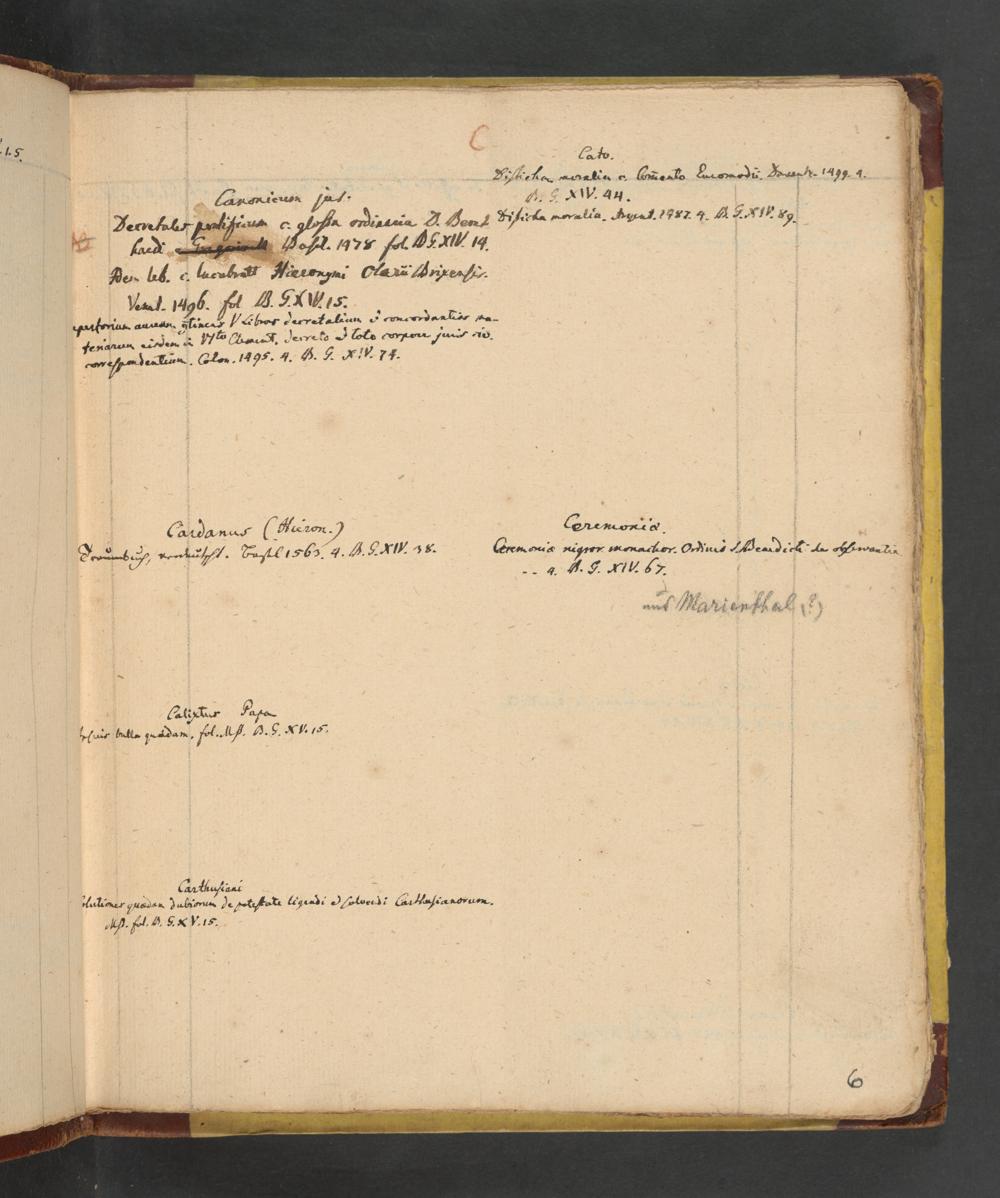 .15.
C
Canonicum jus.
Decretales pontificum c. glossa ordinaria D. Bern
hardi Basil. 1478 fol. B.G.XIV. 14.
Idem lib. c. lucubratt Hieronymi Clarii Brixensis.
Venet. 1496. fol B.G.XIV.15.
epertorium aureum gtinens V Libros decretalium et concordantias ma-
teriarum eisdem in VIto Clement. decreto et toto corpore juris civ.
correspondentium. Colon. 1495. 4. B.G. XIV. 74.
Cardanus (Hieron.)
Traumbuch, verdeutscht. Basel 1563. 4. B.G.XIV. 38.
Calixtus Papa
bulla quaedam, fol. Mß. B.G. XV.15.
Carthusiani
olutiones quaedam dubiorum de potestate ligandi et solvendi Carthusianorum.
Mß. fol. B.G.XV.15.
Cato.
Disticha moralia c. Com̄ento Daventr. 1499. 4.
B.G. XIV. 44.
Disticha moralia. Argent. 1487. 4. B.G.XIV. 89.
Ceremoniæ.
Ceremoniæ nigror. monachor. Ordinis S. Benedicti de observantia
-- 4. B.G. XIV. 67.
aus Marienthal (?)
6